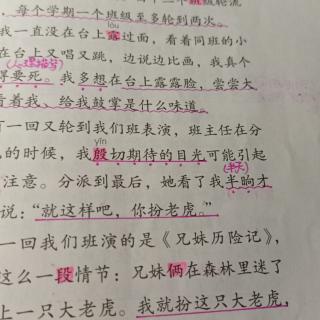 级轮流
，每个学期一个班级至多轮到两次。
lòu
我一直没在台上露过面，看着同班的小
在台上又唱又跳，边说边比画，我真个
得要死。我多想在台上露露脸，尝尝大
看着我、给我鼓掌是什么味道。
有一回又轮到我们班表演，班主任在分
的时候，我殷切期待的目光可能引起
yīn
注意。分派到最后，她看了我半晌才
说：“就这样吧，你扮老虎。”
一回我们班演的是《兄妹历险记》，
这么一段情节：兄妹俩在森林里迷了
上一只大老虎。我就扮这只大老虎，